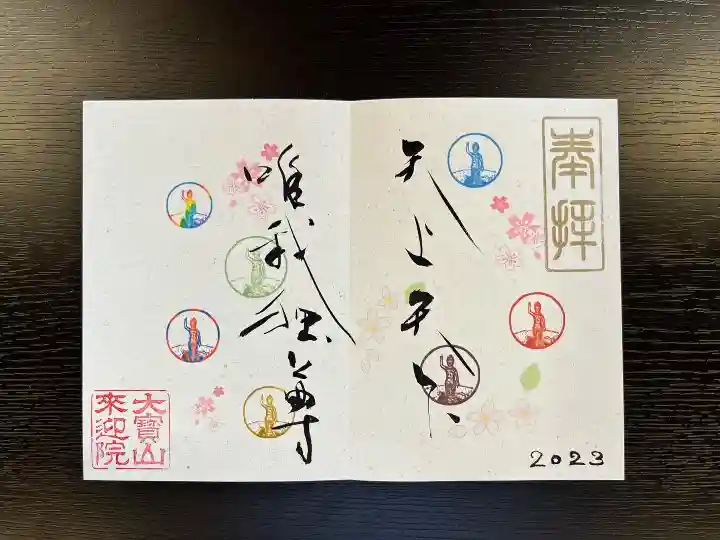 奉拝
天上天下
唯我独尊
2023
大寶山
來迎院